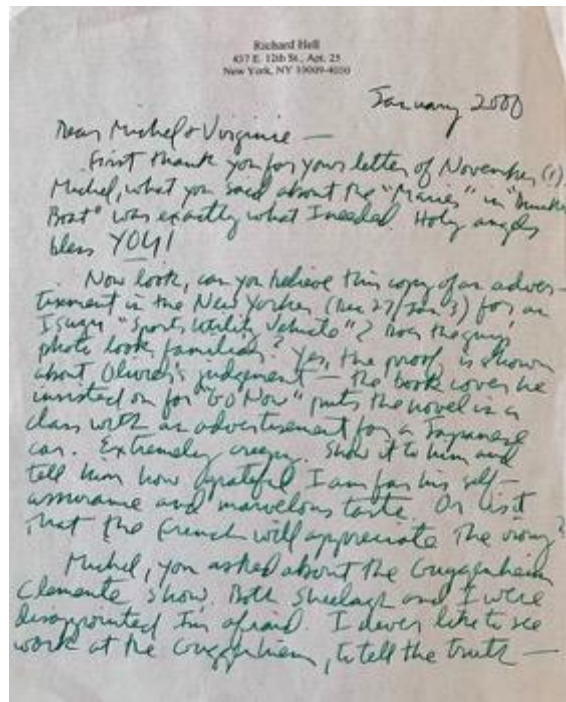 Richard Hell
437 E. 12th St., Apt. 25
New York, NY 10009-4030
January 2000
Dear Michel & Virginie —
First thank you for your letter of November (!).
Michel, what you said about the "Maries" in "Drunken
Boat" was exactly what I needed. Holy angels
bless YOU!
Now look, can you believe this copy of an adver-
tisement in the New Yorker (Dec 27/Jan 3) for an
Isuzu "Sports Utility Vehicle"? Does the guy's
photo look familiar? Yes, the proof is shown
about Olivier's judgement — the book cover he
insisted on for "GO NOW" puts the novel in a
class with an advertisement for a Japanese
car. Extremely creepy. Show it to him and
tell him how grateful I am for his self-
assurance and marvelous taste. Or is it
that the French will appreciate the irony?
Michel, you asked about the Guggenheim
Clemente show. Both Sheelagh and I were
disappointed I'm afraid. I never like to see
work at the Guggenheim, to tell the truth —